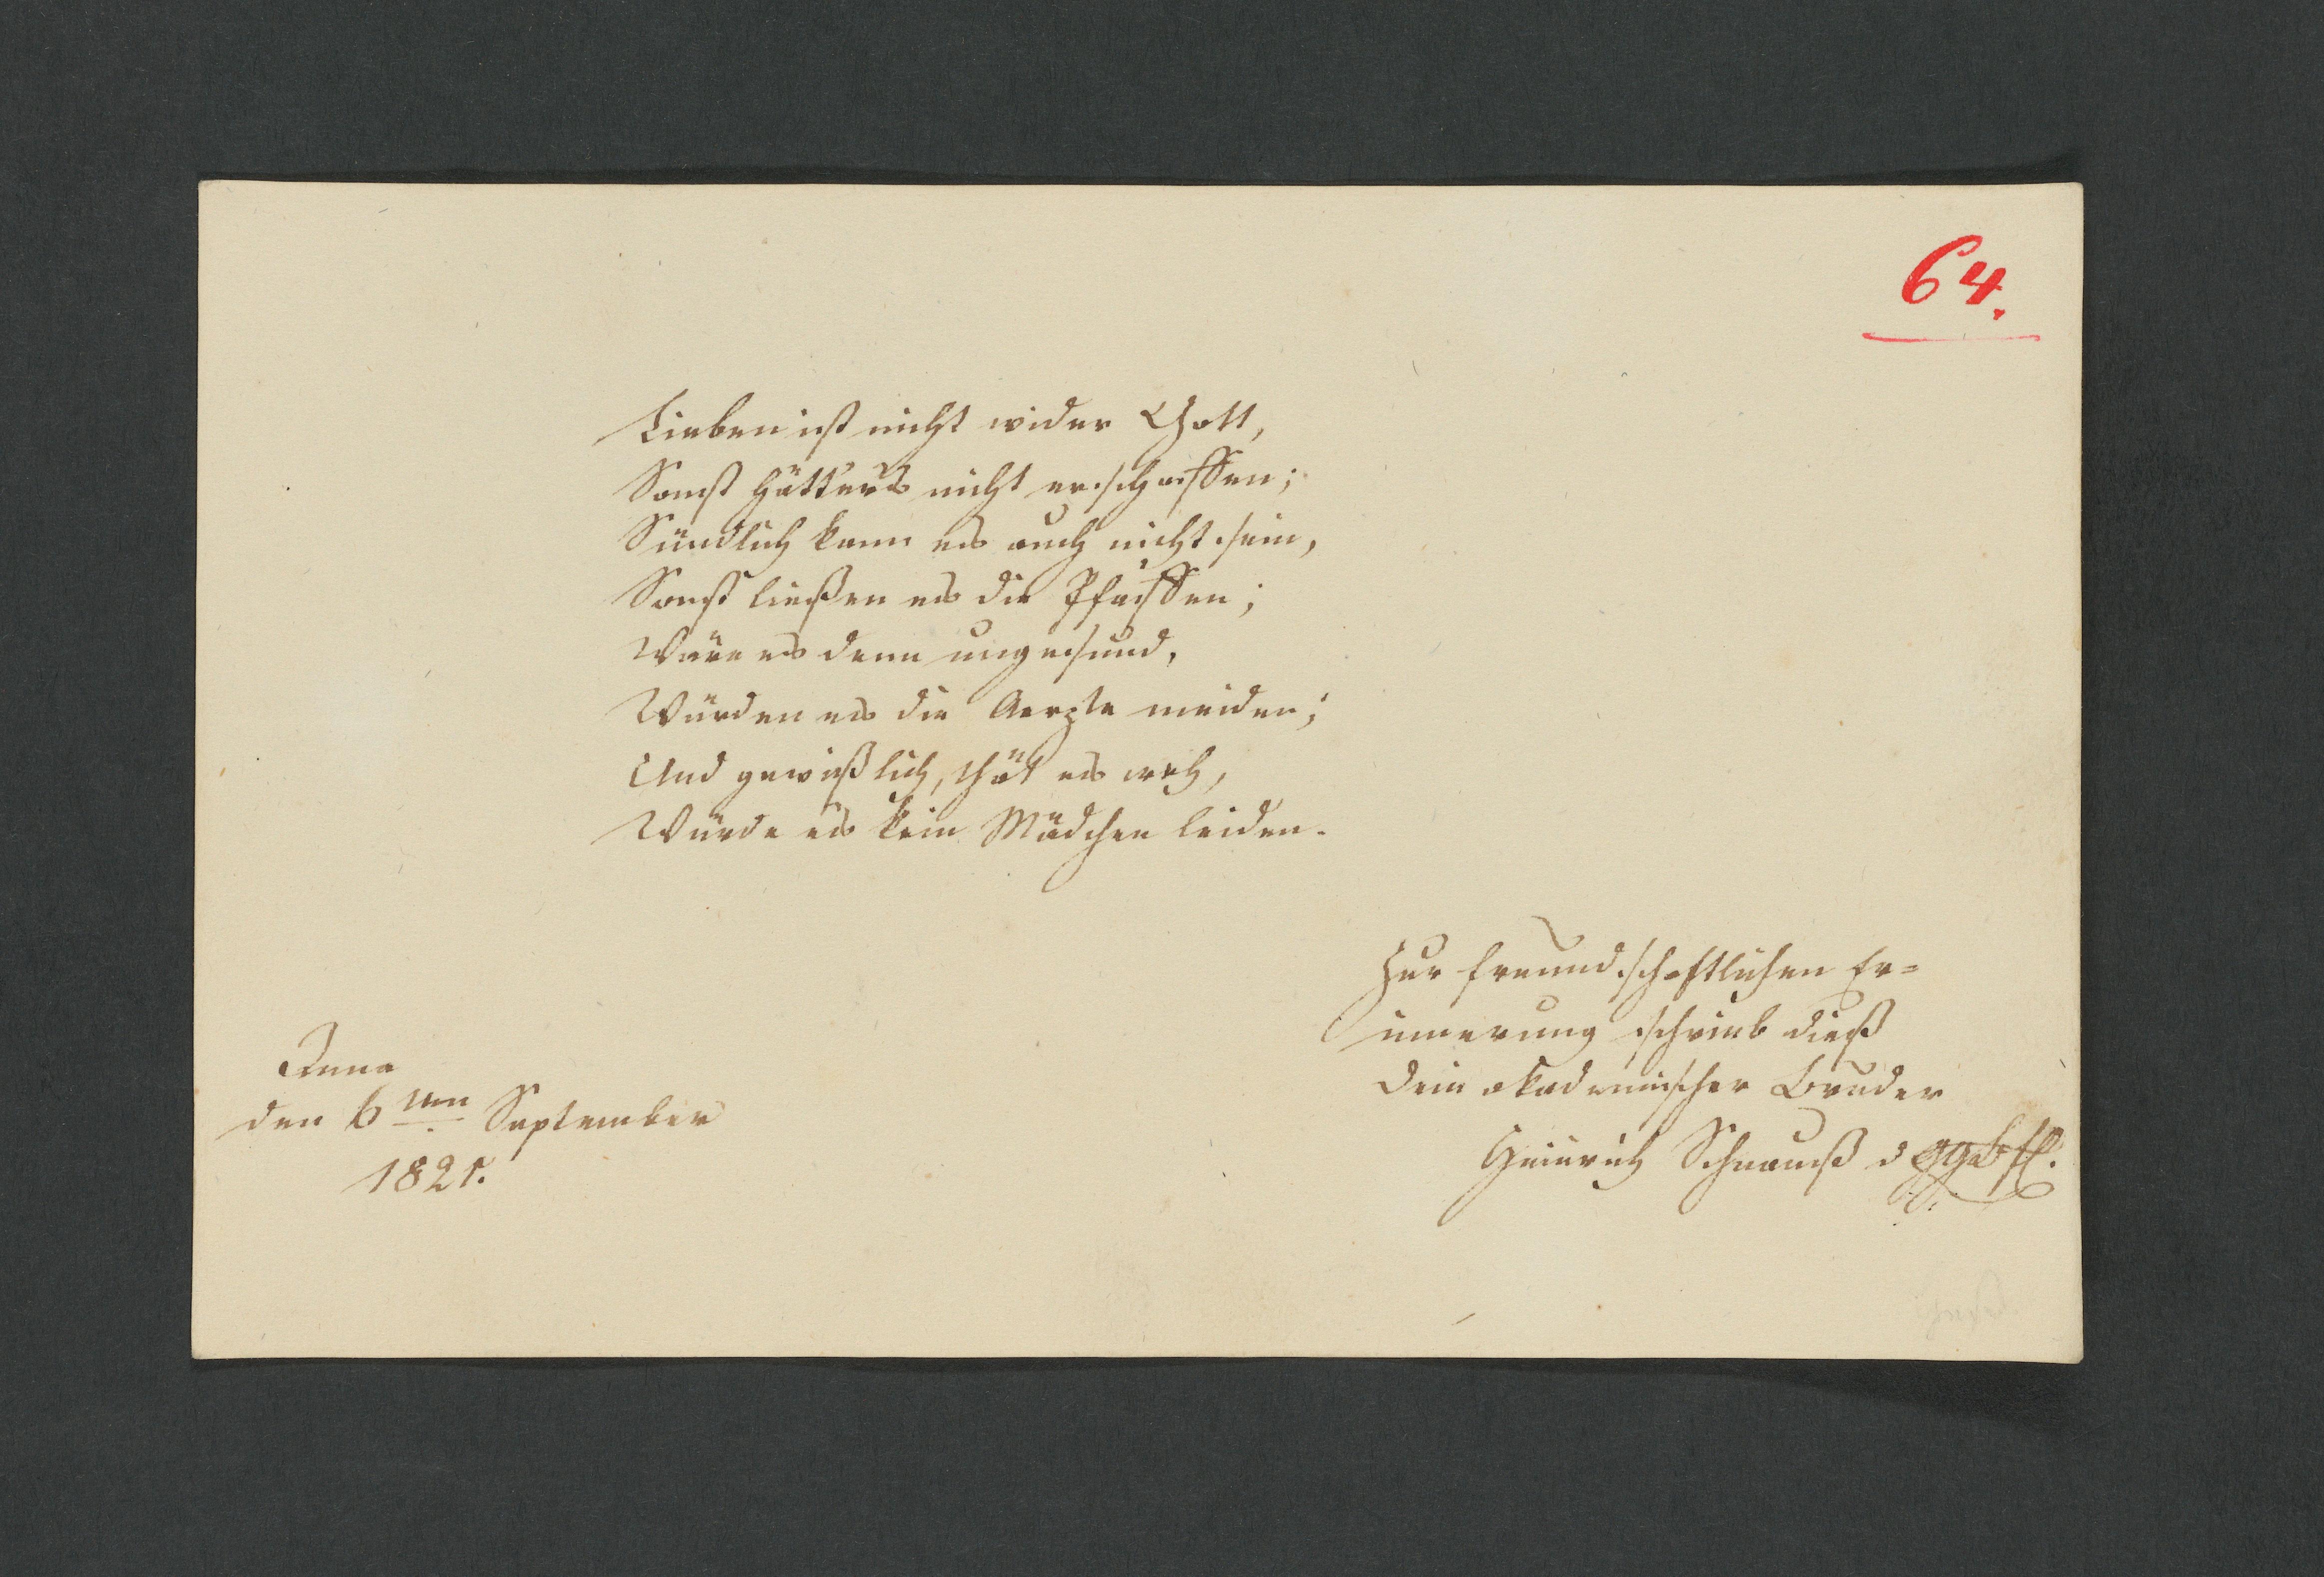 64.
Lieben ist nicht wider Gott,
Sonst hätt er's nicht erschaffen;
Sündlich kann es auch nicht sein,
Sonst ließen es die Pfaffen;
Wäre es denn ungesund,
Würden es die Aerzte meiden;
Und gewißlich, thät es weh,
Würde es kein Mädchen leiden.
Zur freundschaftlichen Er=
innerung schrieb dieß
Dein akademischer Bruder
Heinrich Schnauß
Jena
den 6ten September
1821.